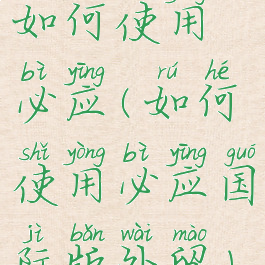 如何使用
bì yīng rú hé
必应(如何
shǐ yòng bì yīng guó
使用必应国
jì bǎn wài mào
际版外贸)